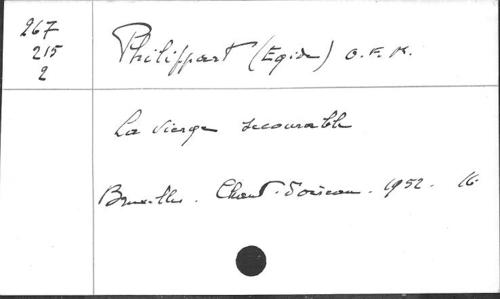 267
215
2
Philippart (Egide) O.F.M.
La Vierge secourable
Bruxelles. Chant d'oiseau. 1952. 16